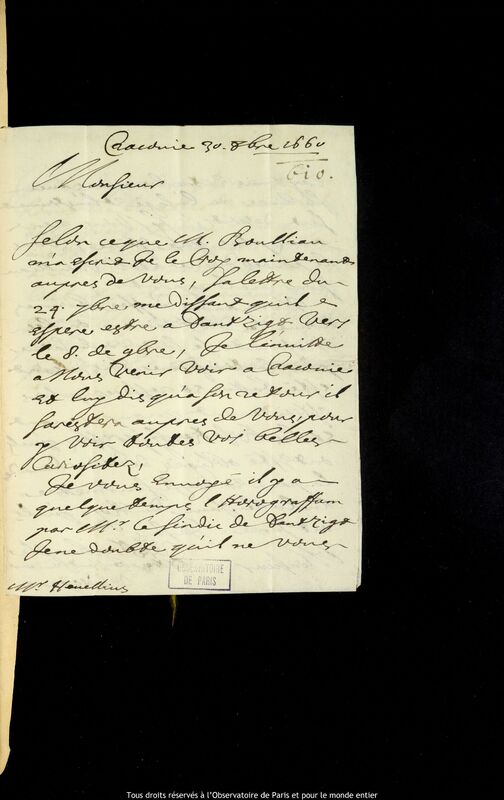 Cracovie 30. 8bre 1660
610.
Monsieur
Selon ce que M. Boulliau
m'a escrit Je le Croy maintenant
aupres de vous, sa lettre du
24. 7bre me disant qu'il
espere estre a Dantzigt vers
le 8. de 9bre, Je l'invitte
a Nous venir voir a Cracovie
et luy dis qu'a son retour il
sarestera aupres de vous, pour
y voir touttes vos belles
Curiositez,
Je vous envoyé il y a
quelque temps l'Horograffum
par Mr. le Sindic de Dantzigt
Je ne doubte qu'il ne vous
Mr. Hevellius
OBSERVATOIRE
DE PARIS
Tous droits réservés à l'Observatoire de Paris et pour le monde entier